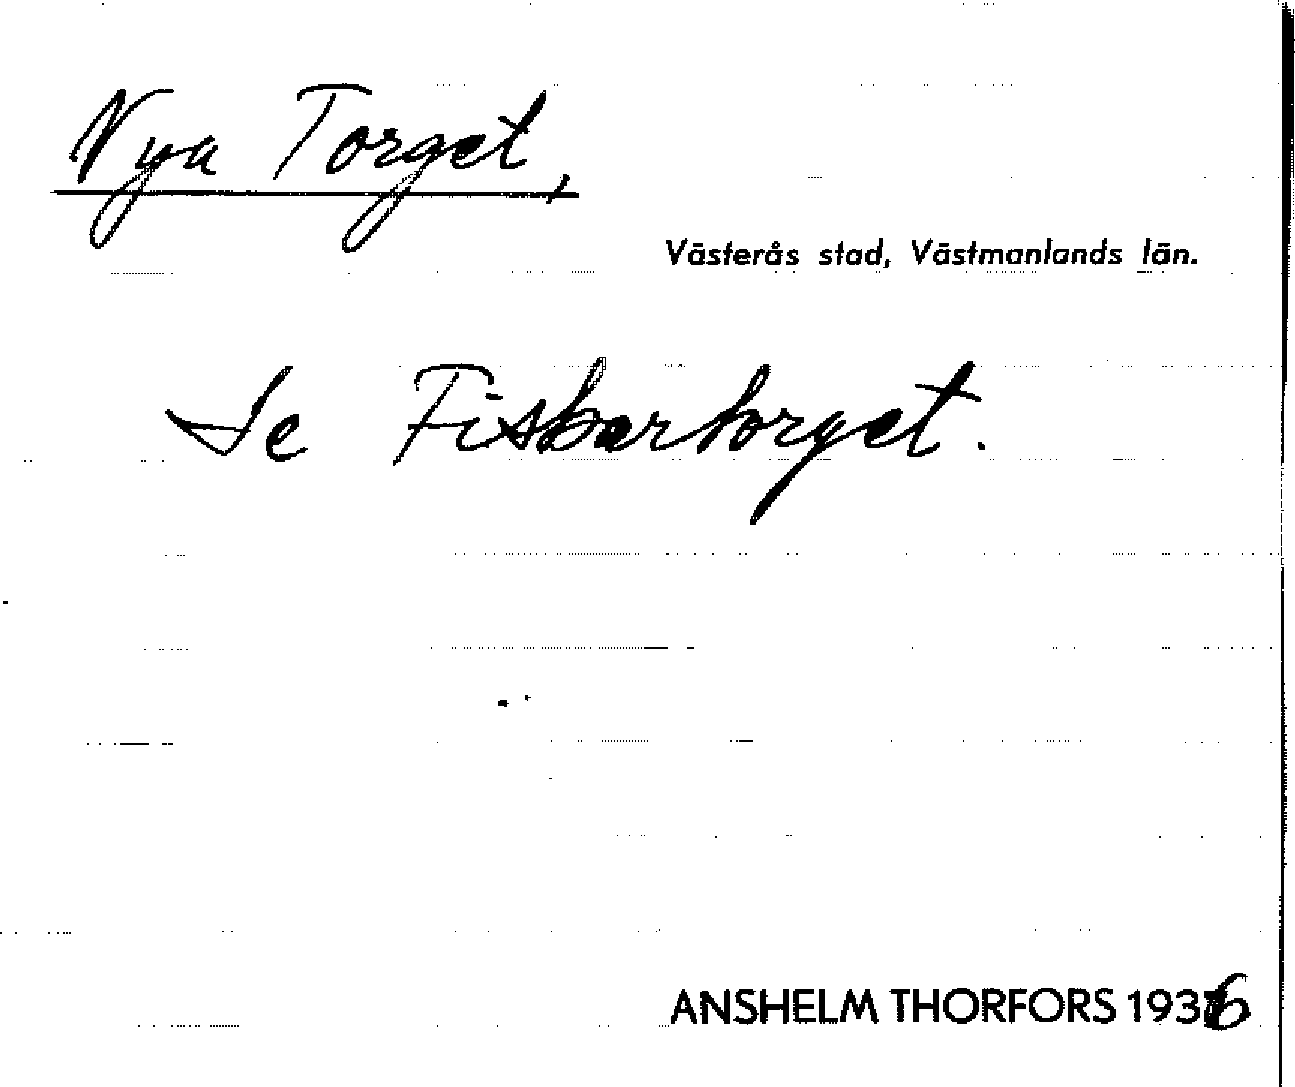 Nya Torget,
Västerås stad, Västmanlands län.
Se Fiskartorget.
ANSHELM THORFORS 1936